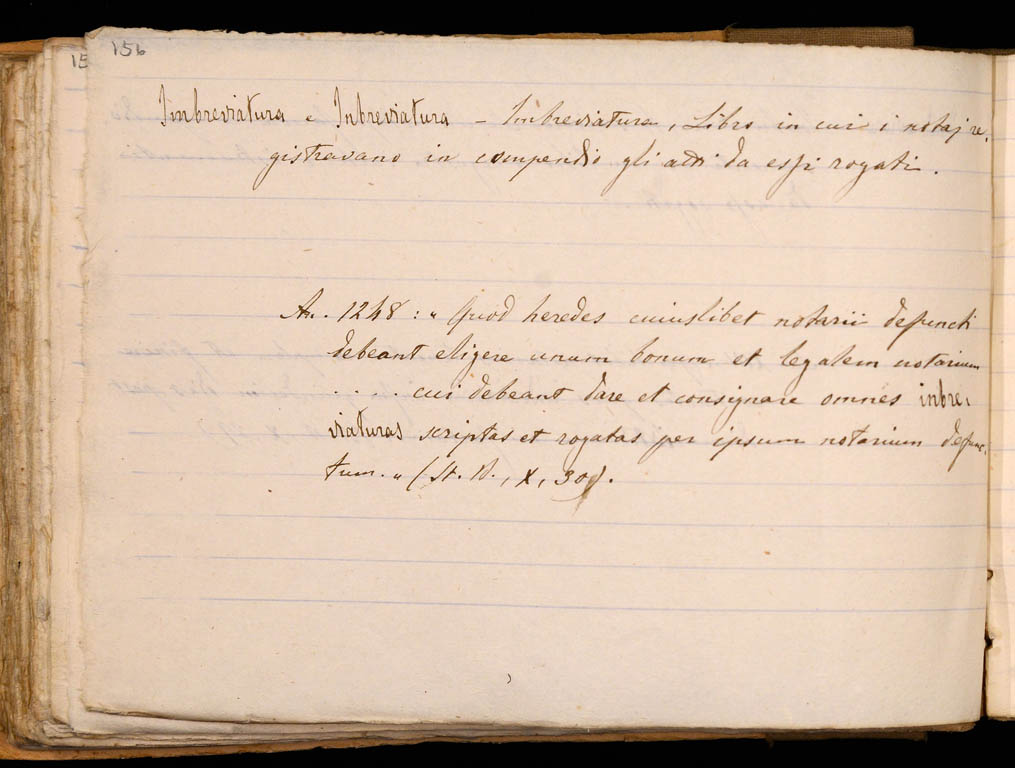 156
15
Imbreviatura e Inbreviatura – Imbreviatura, Libro in cui i notaj re,
gistravano in compendio gli atti da essi rogati.
An. 1248: „ Quod heredes cuiuslibet notarii defuncti
debeant eligere unum bonum et legalem notarium
. . . . cui debeant dare et consignare omnes inbre,
viaturas scriptas et rogatas per ipsum notarium defunc,
tum. „ (St. B., X, 309).